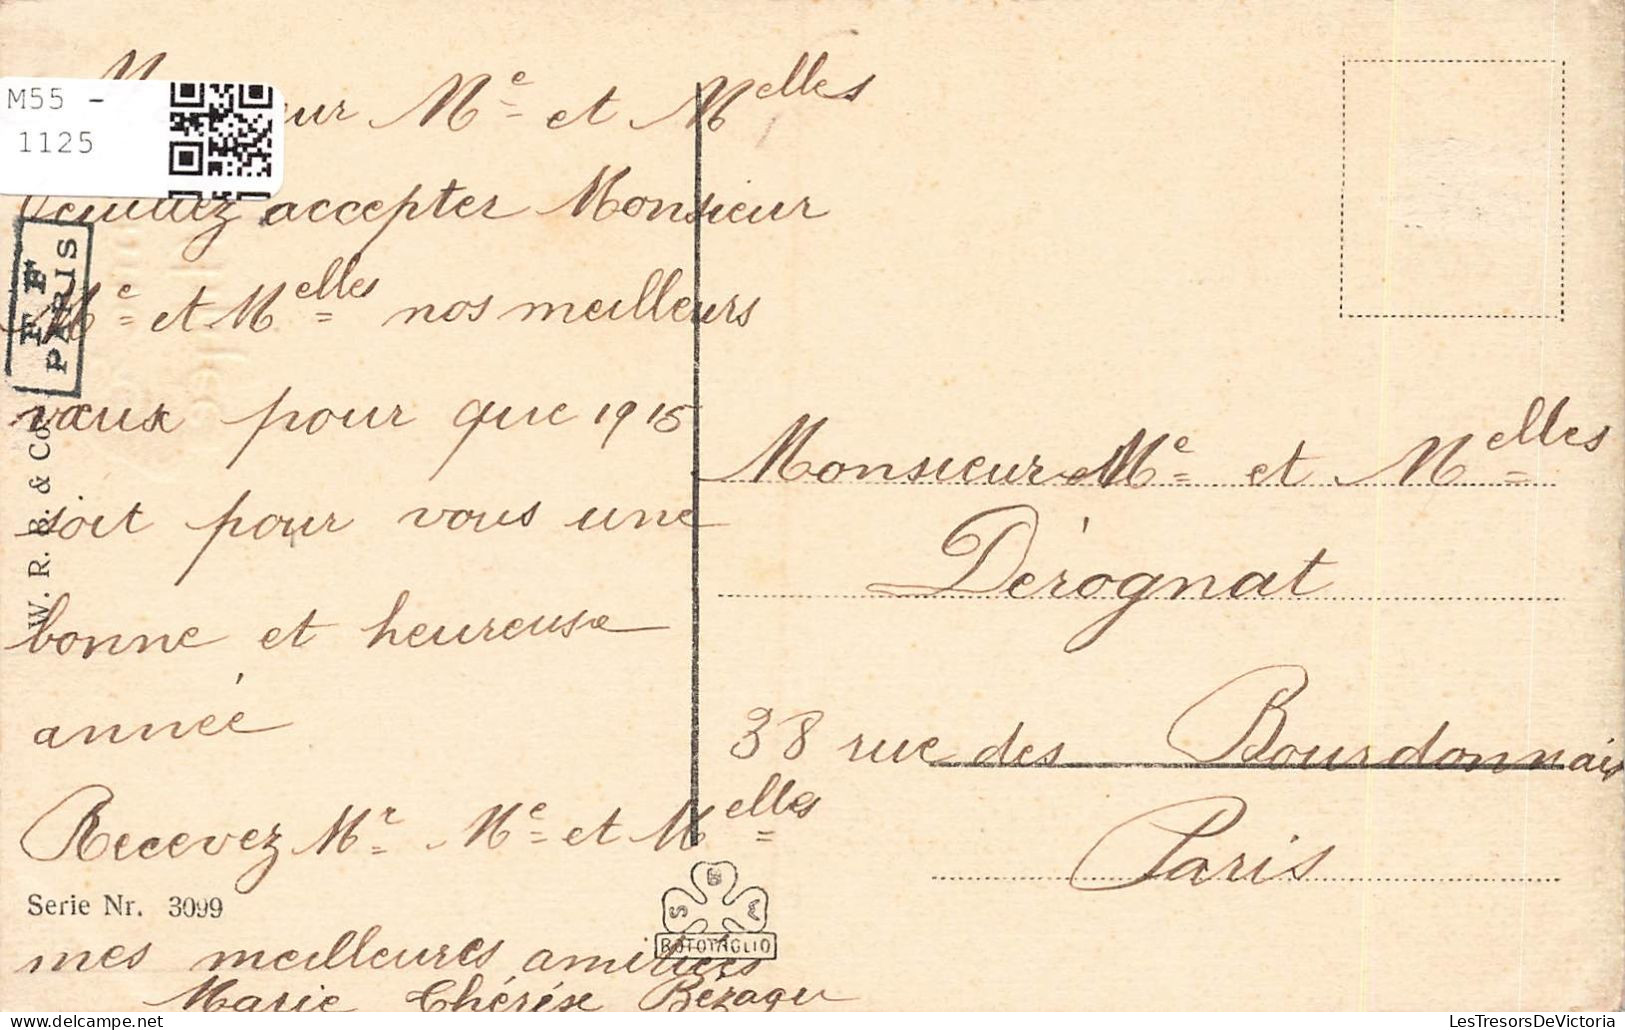 M55 -
1125
Mᵉ et Mᵉˡˡᵉˢ
Veuillez accepter Monsieur
Mᵉ et Mᵉˡˡᵉˢ nos meilleurs
vœux pour que 1915
soit pour vous une
bonne et heureuse
année
Recevez Mʳ Mᵉ et Mᵉˡˡᵉˢ
mes meilleures amitiées
Marie Thérèse
F F
PARIS
W. R. B. & Co.
Serie Nr. 3099
S B W
ROTOTAGLIO
Monsieur Mᵉ et Mᵉˡˡᵉˢ
Dérognat
38 rue des Bourdonnais
Paris
LesTresorsDeVictoria